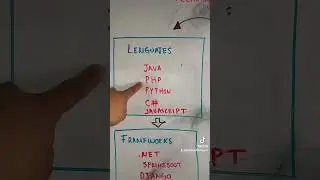 LENGUAJES
JAVA
PHP
PYTHON
C#
JAVASCRIPT
FRAMEWORKS
.NET
SPRINGBOOT
DJANGO